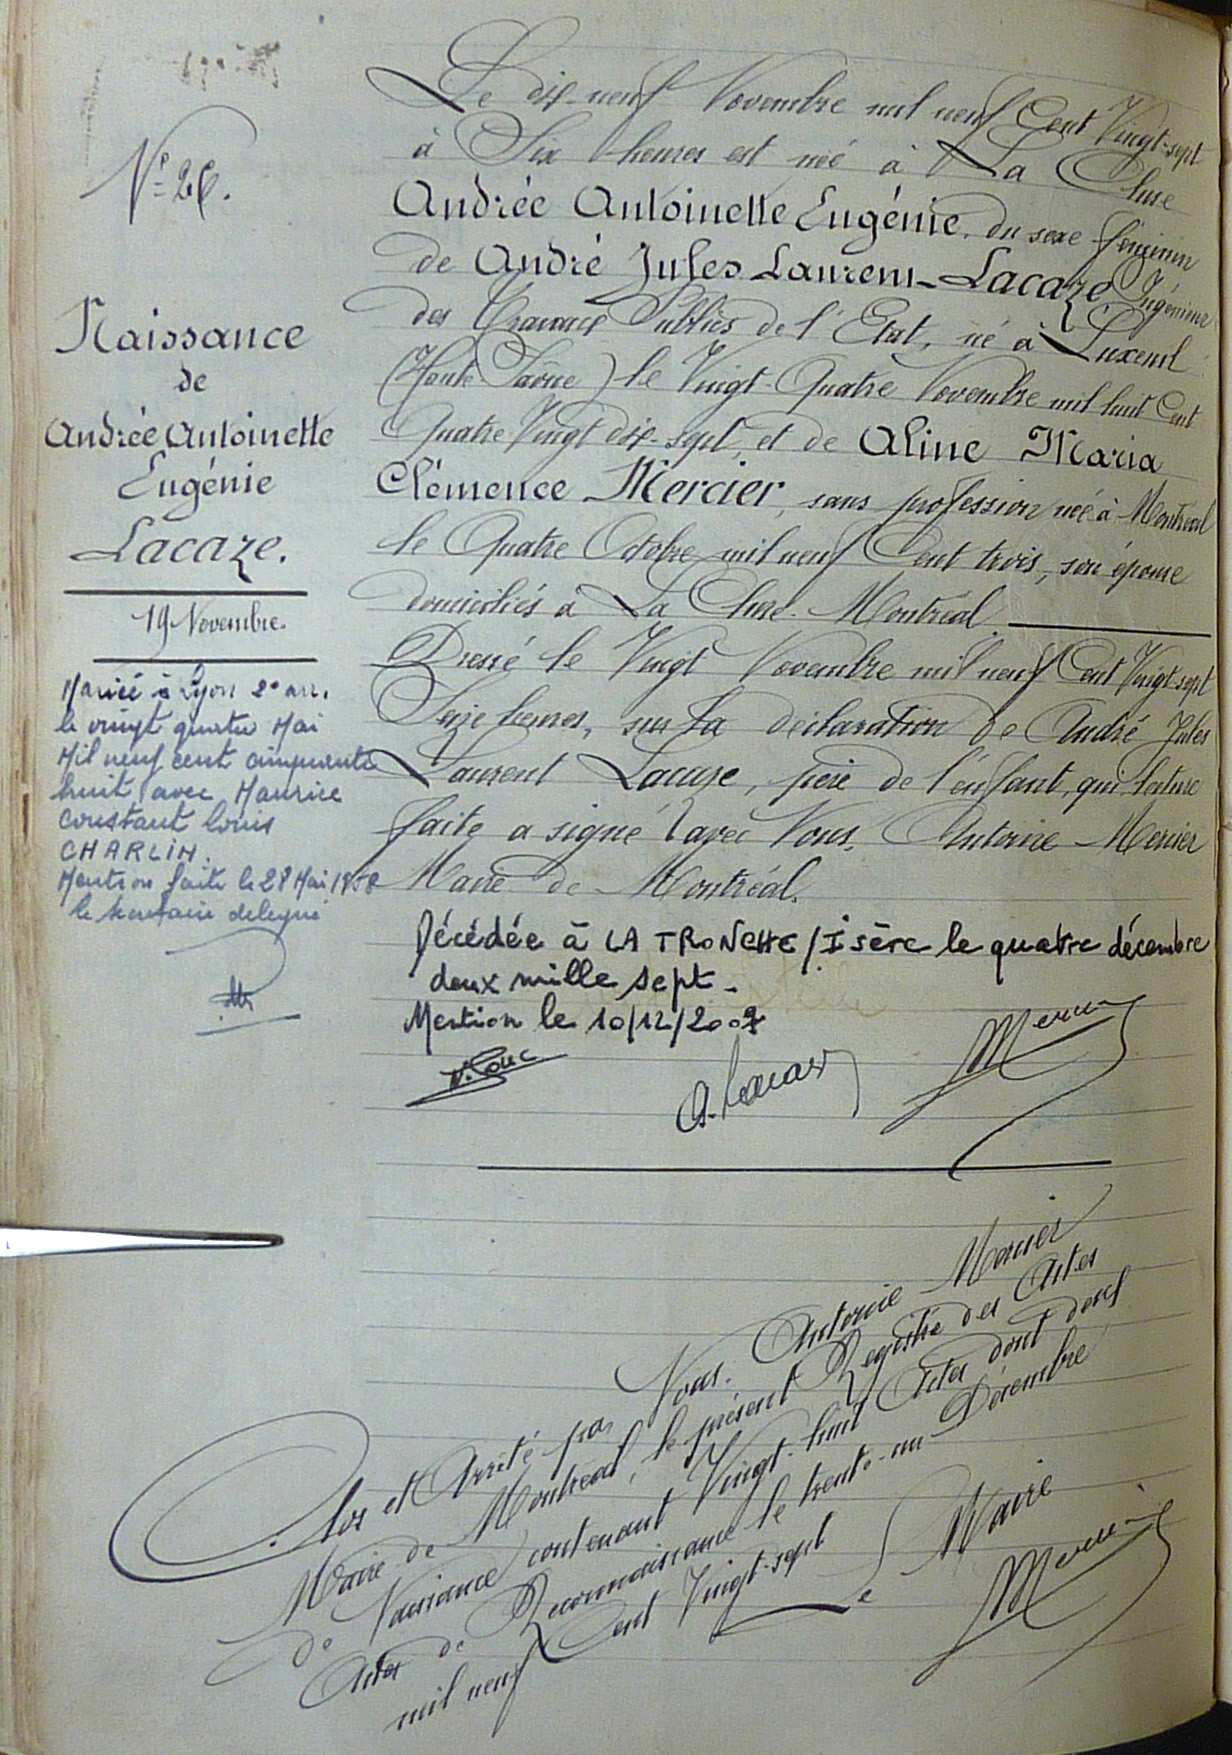 Naissance
de
Andrée Antoinette
Eugénie
Lacaze.
19 Novembre.
Mariée à Lyon 2e arr.
le vingt quatre Mai
Mil neuf cent cinquante
huit avec Maurice
Constant Louis
CHARLIN.
Mention faite le 28 Mai 1958
le secrétaire délégué
Le dix-neuf Novembre mil neuf Cent Vingt-sept
à Six heures est née à La Cluse
Andrée Antoinette Eugénie, du sexe féminin
de André Jules Laurent Lacaze Ingénieur
des Travaux Publics de l'Etat, né à Luxeuil
(Haute Saône) le Vingt-Quatre Novembre mil huit Cent
Quatre Vingt dix-sept, et de Aline Maria
Clémence Mercier, sans profession née à Montréal
le Quatre Octobre mil neuf Cent trois, son épouse
domiciliés à La Cluse-Montréal
Dressé le Vingt Novembre mil neuf Cent Vingt-sept
Seize heures, sur la déclaration de André Jules
Laurent Lacaze, père de l'enfant, qui lecture
faite a signé avec Nous, Antoine Mercier
Maire de Montréal.
Décédée à LA TRONCHE/Isère le quatre décembre
deux mille sept.
Mention le 10/12/2007
A. Lacaze
Mercier
Clos et Arrêté par Nous. Antoine Mercier
Maire de Montréal, le présent Registre des Actes
de Naissance contenant Vingt-huit Actes dont deux
Actes de Reconnaissance le trente-un Décembre
mil neuf Cent Vingt-sept
Le Maire
Mercier